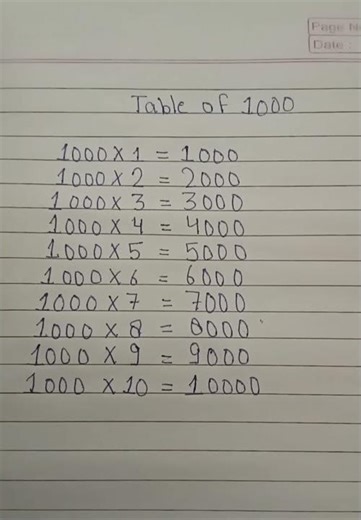 Page No
Date :
Table of 1000
1000 X 1 = 1000
1000 X 2 = 2000
1000 X 3 = 3000
1000 X 4 = 4000
1000 X 5 = 5000
1000 X 6 = 6000
1000 X 7 = 7000
1000 X 8 = 8000
1000 X 9 = 9000
1000 X 10 = 10000